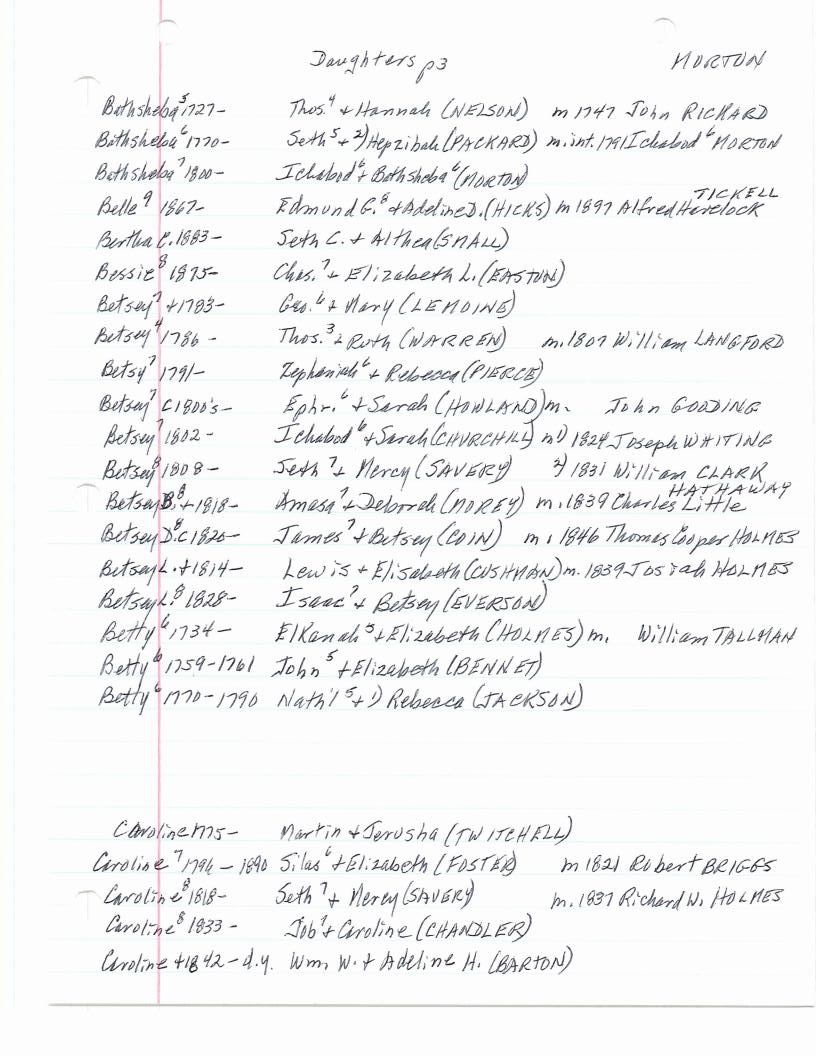 Daughters p3 MORTON
Bathsheba⁵ 1727- Thos.⁴ + Hannah (NELSON) m 1747 John RICKARD
Bathsheba⁶ 1770- Seth⁵ + 2) Hepzibah (PACKARD) m. int. 1791 Ichabod⁶ MORTON
Bathsheba⁷ 1800- Ichabod⁶ + Bathsheba⁶ (MORTON)
TICKELL
Belle⁹ 1867- Edmund G.⁸ + Adeline D. (HICKS) m 1897 Alfred Havelock
Bertha C. 1883- Seth C. + Althea (SMALL)
Bessie⁸ 1875- Chas.⁷ + Elizabeth L. (EASTON)
Betsey⁷ +1783- Geo.⁶ + Mary (LEMOINE)
Betsey⁴ 1786- Thos.³ + Ruth (WARREN) m. 1807 William LANGFORD
Betsy⁷ 1791- Zephaniah⁶ + Rebecca (PIERCE)
Betsey⁷ C1800's- Ephr.⁶ + Sarah (HOWLAND) m. John GOODING
Betsey⁷ 1802- Ichabod⁶ + Sarah (CHURCHILL) m 1) 1824 Joseph WHITING
Betsey⁸ 1808- Seth⁷ + Mercy (SAVERY) 2) 1831 William CLARK
HATHAWAY
Betsey B.⁸ +1818- Amasa⁷ + Deborah (MOREY) m. 1839 Charles Little
Betsey D.⁸ C1820- James⁷ + Betsey (COIN) m. 1846 Thomas Cooper HOLMES
Betsey L. +1814- Lewis + Elisabeth (CUSHMAN) m. 1839 Josiah HOLMES
Betsey L.⁸ 1828- Isaac⁷ + Betsey (EVERSON)
Betty⁶ 1734- Elkanah⁵ + Elizabeth (HOLMES) m. William TALLMAN
Betty⁶ 1759-1761 John⁵ + Elizabeth (BENNET)
Betty⁶ 1770-1790 Nath'l⁵ + 1) Rebecca (JACKSON)
Caroline 1775- Martin + Jerusha (TWITCHELL)
Caroline⁷ 1796-1890 Silas⁶ + Elizabeth (FOSTER) m 1821 Robert BRIGGS
Caroline⁸ 1818- Seth⁷ + Mercy (SAVERY) m. 1837 Richard W. HOLMES
Caroline⁸ 1833- Job⁷ + Caroline (CHANDLER)
Caroline +1842-d.y. Wm. W. + Adeline H. (BARTON)